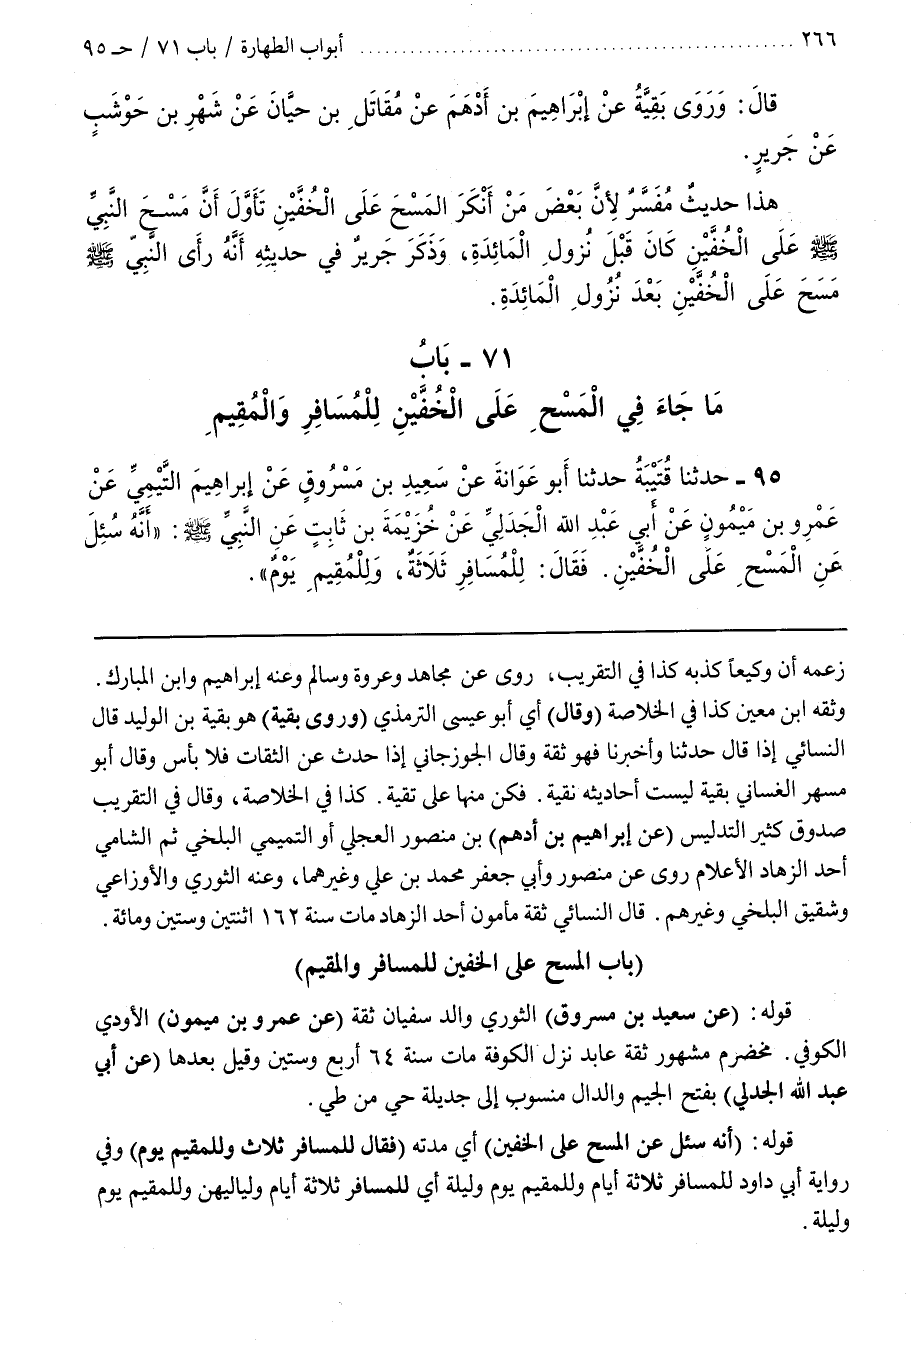 ٢٦٦ .......................................................... أبواب الطهارة / باب ٧١ / حـ ٩٥
قالَ: وَرَوَى بَقِيَّةُ عنْ إبْرَاهِيمَ بن أَدْهَمَ عنْ مُقَاتلِ بن حيَّانَ عَنْ شَهْرِ بن حَوْشَبٍ
عَنْ جَريرٍ.
هذا حديثٌ مُفَسَّرٌ لأنَّ بَعْضَ مَنْ أَنْكَرَ المَسْحَ عَلَى الْخُفَّيْنِ تَأَوَّلَ أَنَّ مَسْحَ النَّبيِّ
ﷺ عَلَى الْخُفَّيْنِ كَانَ قَبْلَ نُزولِ الْمَائِدَةِ، وَذَكَرَ جَريرٌ في حديثِهِ أَنَّهُ رأَى النَّبِيَّ ﷺ
مَسَحَ عَلَى الْخُفَّيْنِ بَعْدَ نُزُولِ الْمَائِدَةِ.
٧١ - بَابُ
مَا جَاءَ فِي الْمَسْحِ عَلَى الْخُفَّيْنِ لِلْمُسَافِرِ وَالْمُقِيمِ
٩٥ - حدثنا قُتَيْبَةُ حدثنا أَبو عَوَانةَ عنْ سَعِيدِ بن مَسْرُوقٍ عَنْ إبراهيمَ التَّيْمِيِّ عَنْ
عَمْرِو بن مَيْمُونٍ عَنْ أَبي عَبْدِ الله الْجَدَلِيِّ عَنْ خُزَيْمَةَ بن ثَابِتٍ عَنِ النَّبيِّ ﷺ: «أَنَّهُ سُئِلَ
عَنِ الْمَسْحِ عَلَى الْخُفَّيْنِ. فَقَالَ: لِلْمُسَافِرِ ثَلَاثَةٌ، وَلِلْمُقِيمِ يَوْمٌ».
زعمه أن وكيعاً كذبه كذا في التقريب، روى عن مجاهد وعروة وسالم وعنه إبراهيم وابن المبارك.
وثقه ابن معين كذا في الخلاصة (وقال) أي أبو عيسى الترمذي (وروى بقية) هو بقية بن الوليد قال
النسائي إذا قال حدثنا وأخبرنا فهو ثقة وقال الجوزجاني إذا حدث عن الثقات فلا بأس وقال أبو
مسهر الغساني بقية ليست أحاديثه نقية. فكن منها على تقية. كذا في الخلاصة، وقال في التقريب
صدوق كثير التدليس (عن إبراهيم بن أدهم) بن منصور العجلي أو التميمي البلخي ثم الشامي
أحد الزهاد الأعلام روى عن منصور وأبي جعفر محمد بن علي وغيرهما، وعنه الثوري والأوزاعي
وشقيق البلخي وغيرهم. قال النسائي ثقة مأمون أحد الزهاد مات سنة ١٦٢ اثنتين وستين ومائة.
(باب المسح على الخفين للمسافر والمقيم)
قوله: (عن سعيد بن مسروق) الثوري والد سفيان ثقة (عن عمرو بن ميمون) الأودي
الكوفي. مخضرم مشهور ثقة عابد نزل الكوفة مات سنة ٦٤ أربع وستين وقيل بعدها (عن أبي
عبد الله الجدلي) بفتح الجيم والدال منسوب إلى جديلة حي من طي.
قوله: (أنه سئل عن المسح على الخفين) أي مدته (فقال للمسافر ثلاث وللمقيم يوم) وفي
رواية أبي داود للمسافر ثلاثة أيام وللمقيم يوم وليلة أي للمسافر ثلاثة أيام ولياليهن وللمقيم يوم
وليلة.